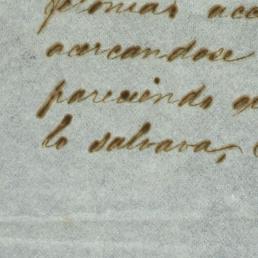 acc
acercandose
pareciendo qu
lo salvava,